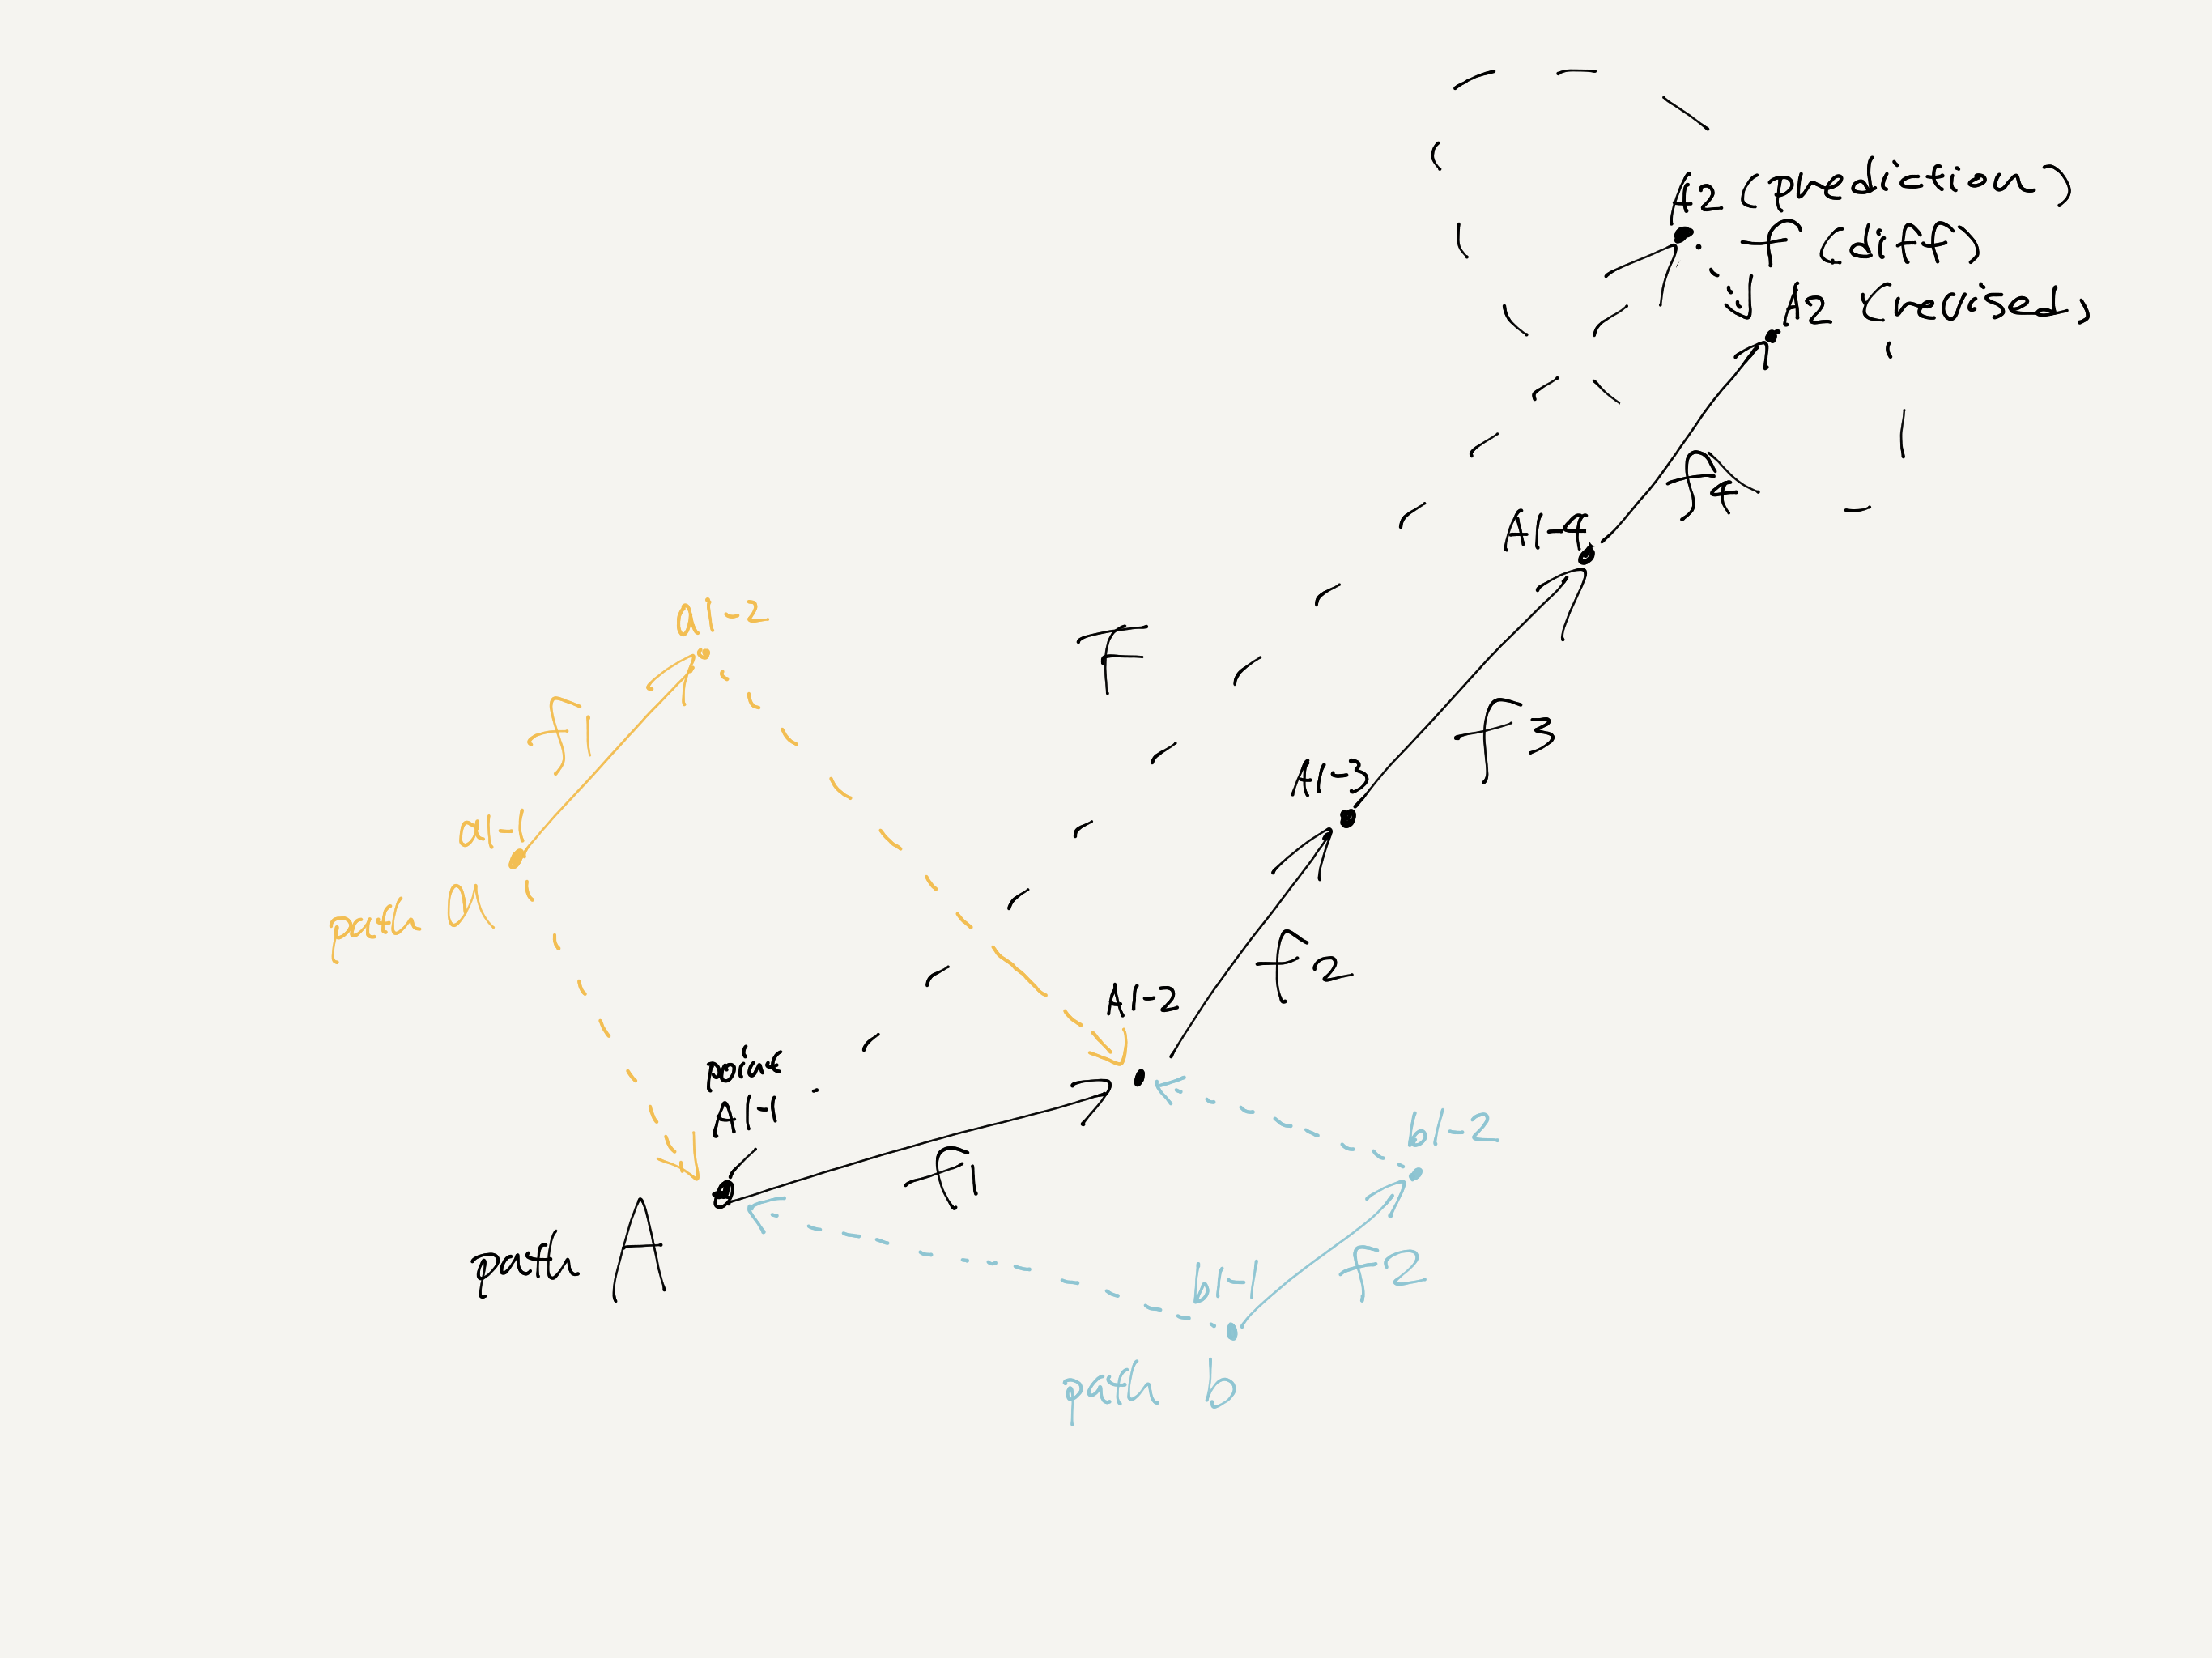 A2 (prediction)
f (diff)
A2 (revised)
f4
A1-4
a1-2
F
f1
f3
A1-3
a1-1
path a
f2
A1-2
point
A1-1
b1-2
f1
path A
b1-1
f2
path b